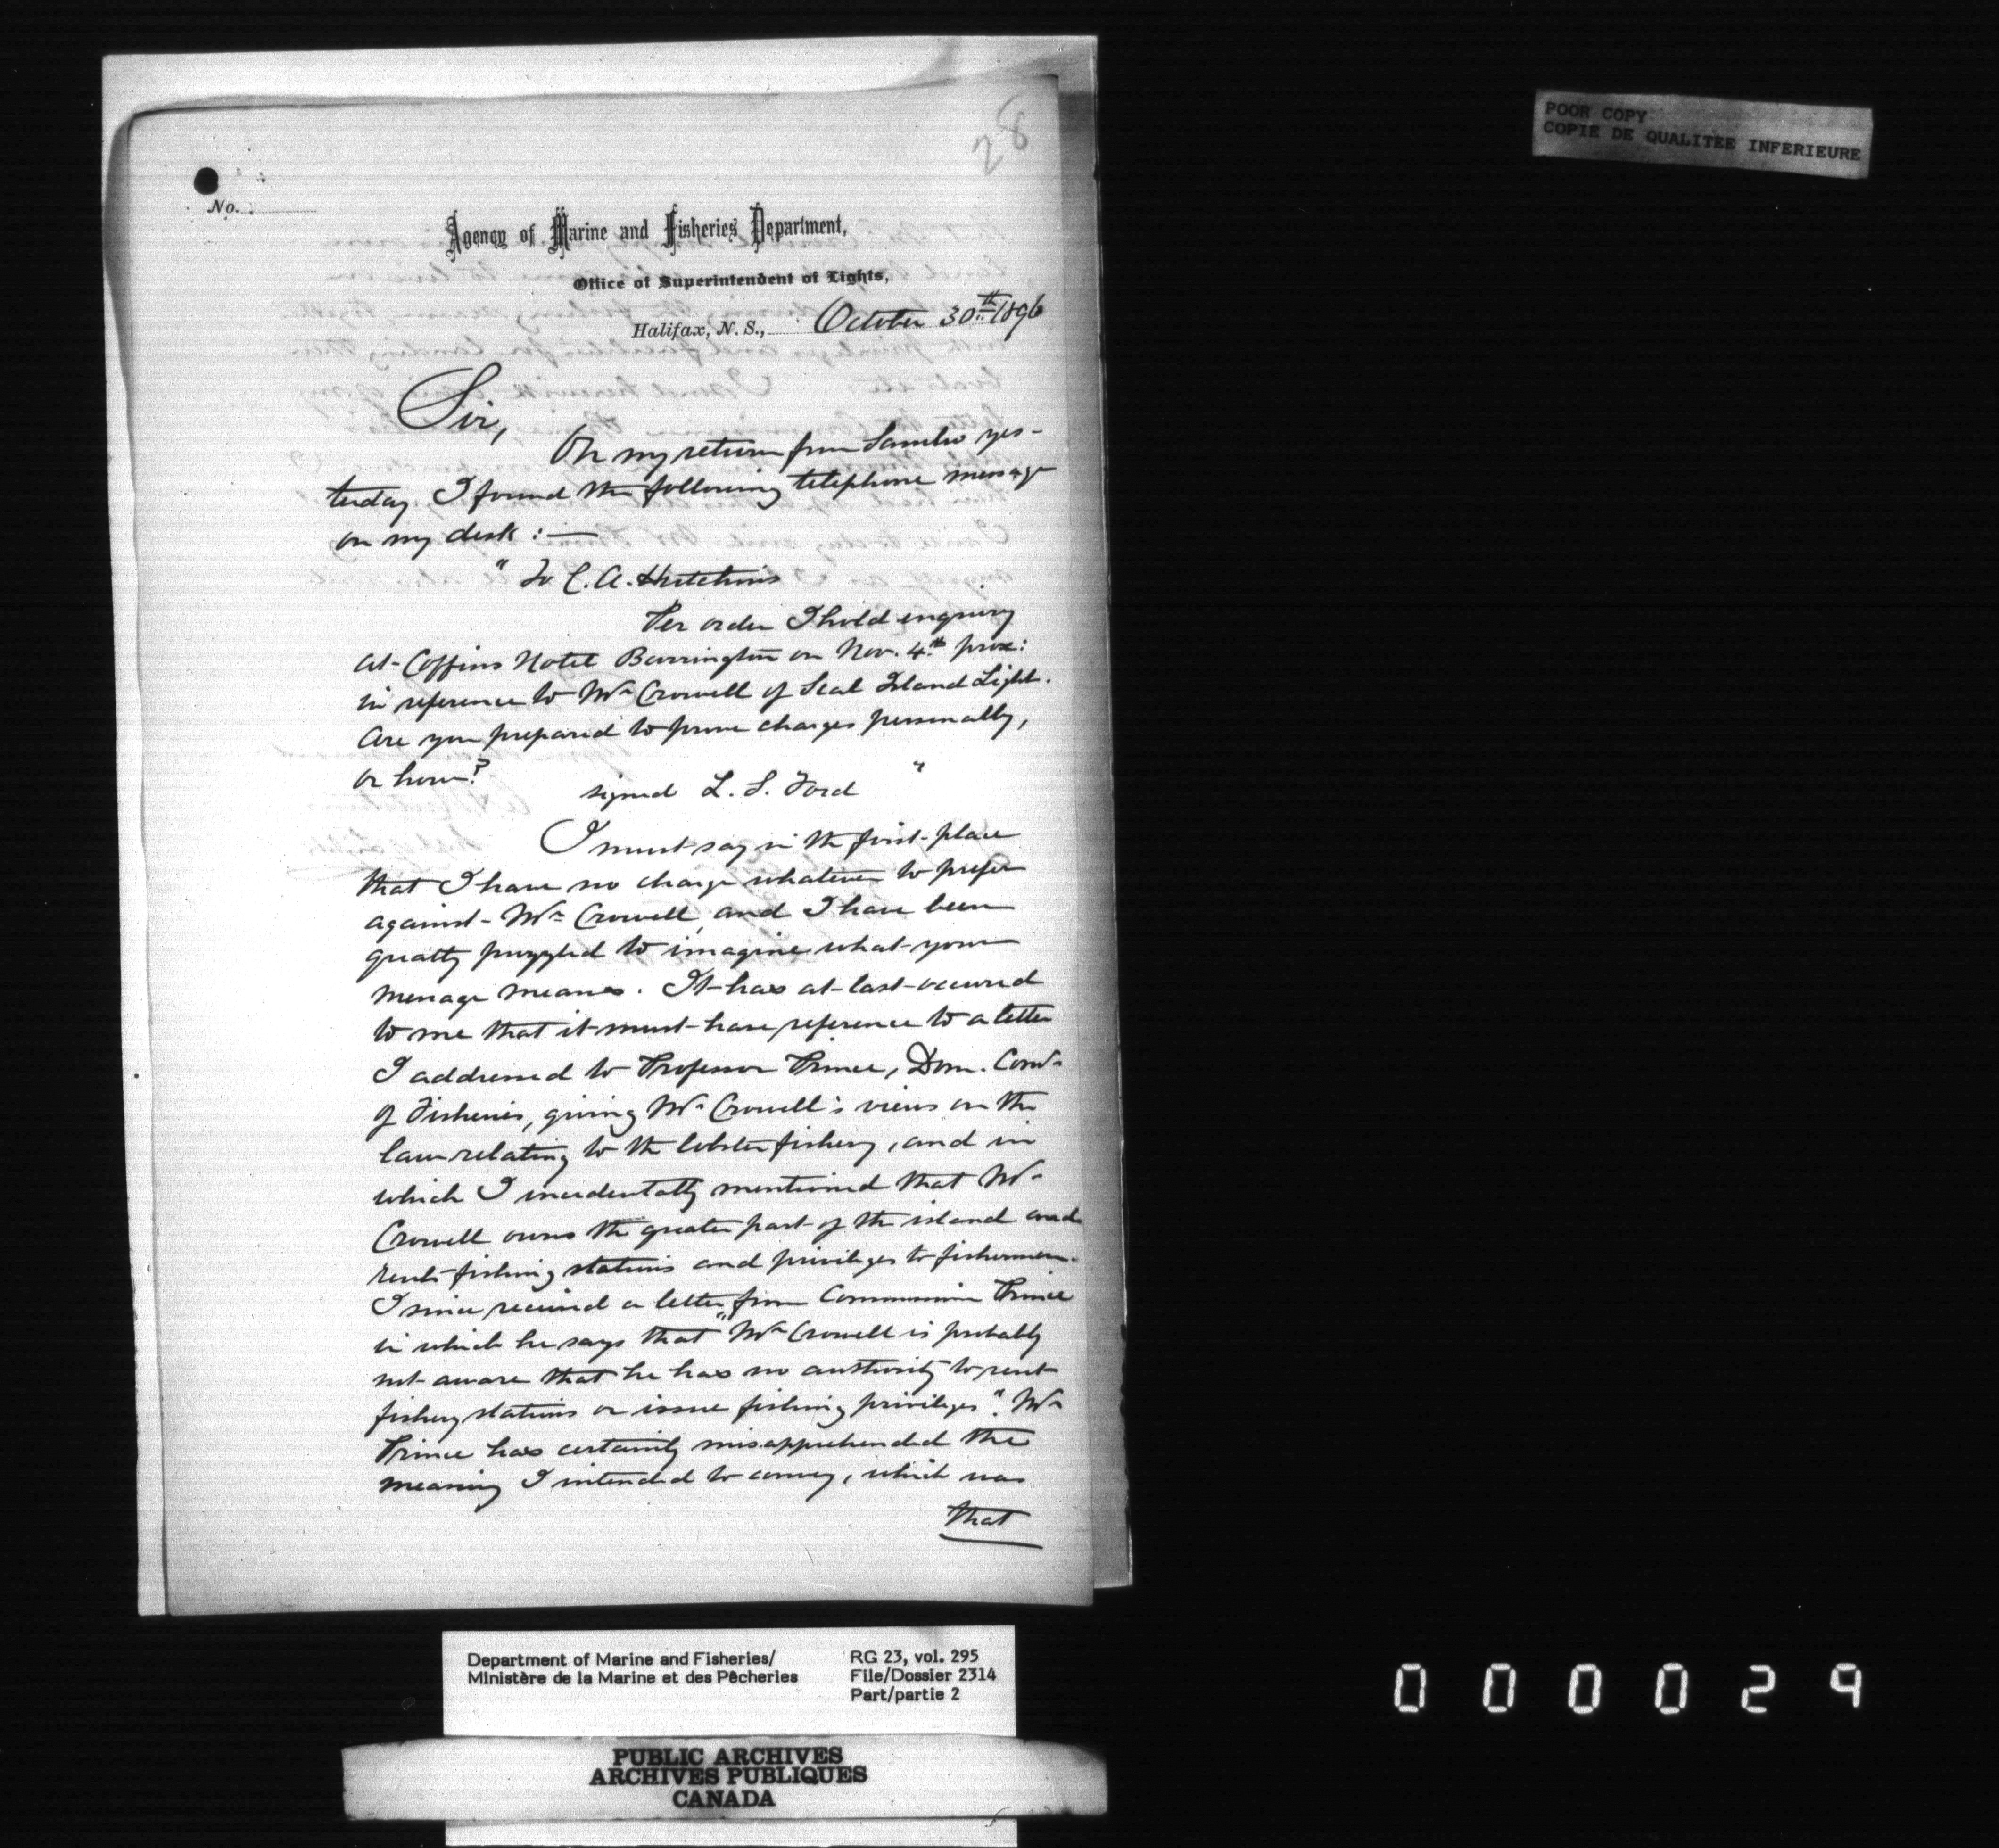 28
No.
Agency of Marine and Fisheries Department,
Office of Superintendent of Lights,
Halifax, N. S., October 30th 1896
Sir,
On my return from Sambro yes-
terday I found the following telephone message
on my desk :—
" To C. A. Hutchins
Per order I hold enquiry
at Coffins Hotel Barrington on Nov. 4th prox:
in reference to Mr Crowell of Seal Island Light.
Are you prepared to prove charges personally,
or how?
signed L. S. Ford "
I must say in the first place
that I have no charge whatever to prefer
against Mr Crowell, and I have been
greatly puzzled to imagine what your
message means. It has at last occurred
to me that it must have reference to a letter
I addressed to Professor Prince, Dom. Comr
of Fisheries, giving Mr Crowell's views on the
law relating to the lobster fishery, and in
which I incidentally mentioned that Mr
Crowell owns the greater part of the island and
rents fishing stations and privileges to fishermen.
I since received a letter from Commissioner Prince
in which he says that "Mr Crowell is probably
not aware that he has no authority to rent
fishery stations or issue fishing privileges". Mr
Prince has certainly misapprehended the
meaning I intended to convey, which was
that
POOR COPY
COPIE DE QUALITEE INFERIEURE
Department of Marine and Fisheries/
Ministère de la Marine et des Pêcheries
RG 23, vol. 295
File/Dossier 2314
Part/partie 2
PUBLIC ARCHIVES
ARCHIVES PUBLIQUES
CANADA
000029